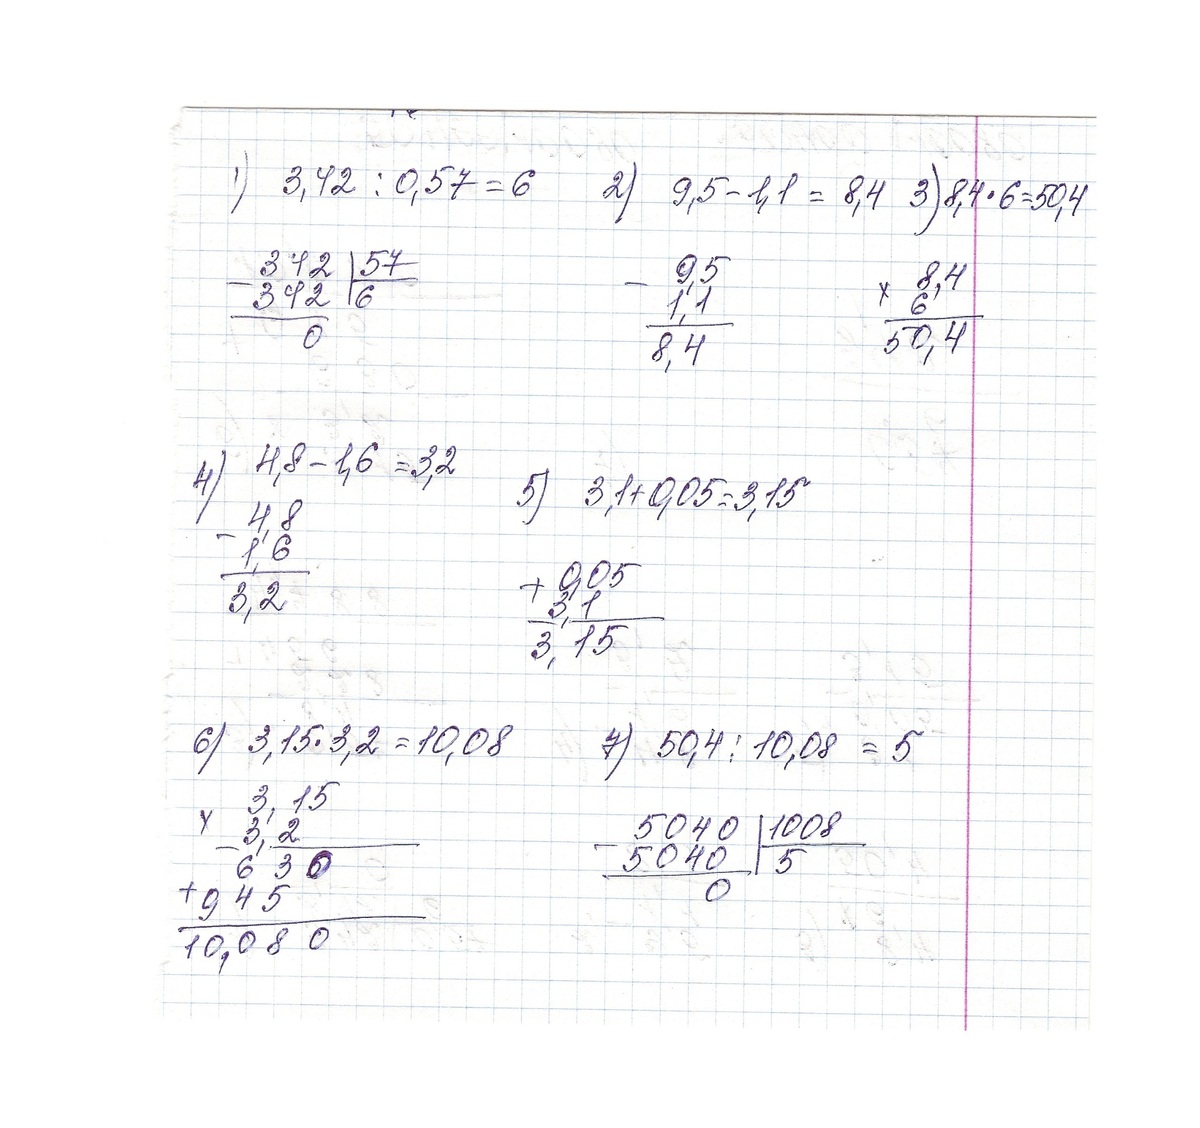 1) 3,42 : 0,57 = 6 2) 9,5 - 1,1 = 8,4 3) 8,4 · 6 = 50,4
- 342 | 57
342 | 6
0
- 9,5
1,1
8,4
x 8,4
6
50,4
4) 4,8 - 1,6 = 3,2
- 4,8
1,6
3,2
5) 3,1 + 0,05 = 3,15
+ 0,05
3,1
3,15
6) 3,15 · 3,2 = 10,08 7) 50,4 : 10,08 = 5
x 3,15
3,2
630
+ 945
10,080
- 5040 | 1008
5040 | 5
0